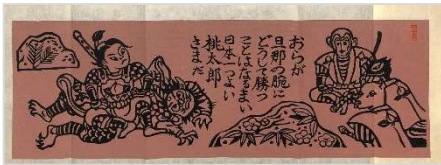 おらが
旦那の腕に
どうして勝つ
ことはなるまい
日本一つよい
桃太郎
さまだ